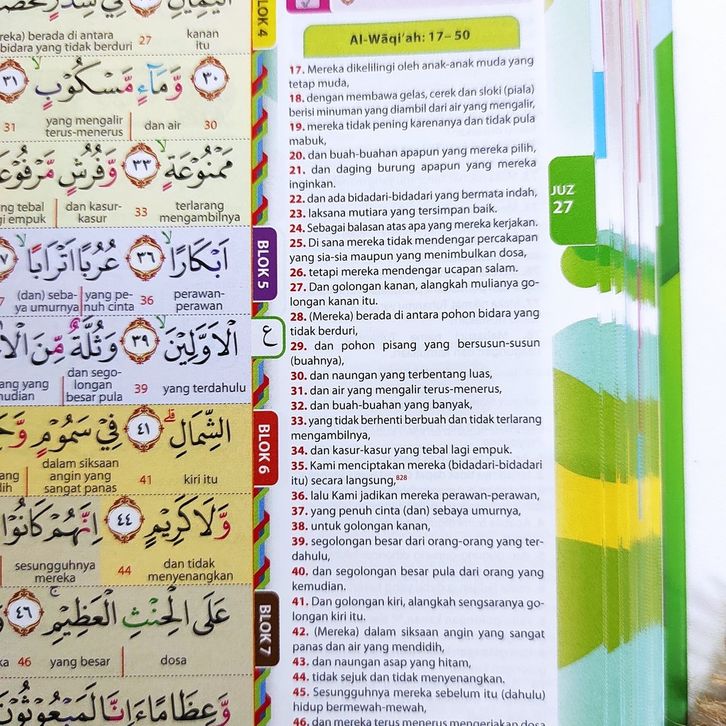 BLOK 4
كanan
itu
27
reka) berada di antara
bidara yang tidak berduri
وَّمَاۤءٍ مَّسْكُوْبٍ
٣٠
٣١
30
dan air
yang mengalir
terus-menerus
31
مَمْنُوْعَةٍ
٣٣
وَّفُرُشٍ مَّرْفُوْعَ
terlarang
mengambilnya
33
dan kasur-
kasur
ng tebal
gi empuk
BLOK 5
اَبْكَارًا
٣٦
عُرُبًا اَتْرَابًا
perawan-
perawan
36
yang pe-
nuh cinta
(dan) seba-
ya umurnya
ع
الْاَوَّلِيْنَ
٣٩
وَثُلَّةٌ مِّنَ الْاٰ
yang terdahulu
39
dan sego-
longan
besar pula
ang yang
mudian
BLOK 6
الشِّمَالِ
٤١
فِيْ سَمُوْمٍ وَّحَ
kiri itu
41
dalam siksaan
angin yang
sangat panas
وَّلَا كَرِيْمٍ
٤٤
اِنَّهُمْ كَانُوْا
dan tidak
menyenangkan
44
sesungguhnya
mereka
BLOK 7
عَلَى الْحِنْثِ الْعَظِيْمِ
٤٦
dosa
yang besar
46
وَّعِظَامًا ءَاِنَّا لَمَبْعُوْثُوْنَ
Al-Wāqi'ah: 17– 50
17. Mereka dikelilingi oleh anak-anak muda yang
tetap muda,
18. dengan membawa gelas, cerek dan sloki (piala)
berisi minuman yang diambil dari air yang mengalir,
19. mereka tidak pening karenanya dan tidak pula
mabuk,
20. dan buah-buahan apapun yang mereka pilih,
21. dan daging burung apapun yang mereka
inginkan.
22. dan ada bidadari-bidadari yang bermata indah,
23. laksana mutiara yang tersimpan baik.
24. Sebagai balasan atas apa yang mereka kerjakan.
25. Di sana mereka tidak mendengar percakapan
yang sia-sia maupun yang menimbulkan dosa,
26. tetapi mereka mendengar ucapan salam.
27. Dan golongan kanan, alangkah mulianya go-
longan kanan itu.
28. (Mereka) berada di antara pohon bidara yang
tidak berduri,
29. dan pohon pisang yang bersusun-susun
(buahnya),
30. dan naungan yang terbentang luas,
31. dan air yang mengalir terus-menerus,
32. dan buah-buahan yang banyak,
33. yang tidak berhenti berbuah dan tidak terlarang
mengambilnya,
34. dan kasur-kasur yang tebal lagi empuk.
35. Kami menciptakan mereka (bidadari-bidadari
itu) secara langsung,828
36. lalu Kami jadikan mereka perawan-perawan,
37. yang penuh cinta (dan) sebaya umurnya,
38. untuk golongan kanan,
39. segolongan besar dari orang-orang yang ter-
dahulu,
40. dan segolongan besar pula dari orang yang
kemudian.
41. Dan golongan kiri, alangkah sengsaranya go-
longan kiri itu.
42. (Mereka) dalam siksaan angin yang sangat
panas dan air yang mendidih,
43. dan naungan asap yang hitam,
44. tidak sejuk dan tidak menyenangkan.
45. Sesungguhnya mereka sebelum itu (dahulu)
hidup bermewah-mewah,
46. dan mereka terus menerus mengerjakan dosa
JUZ
27